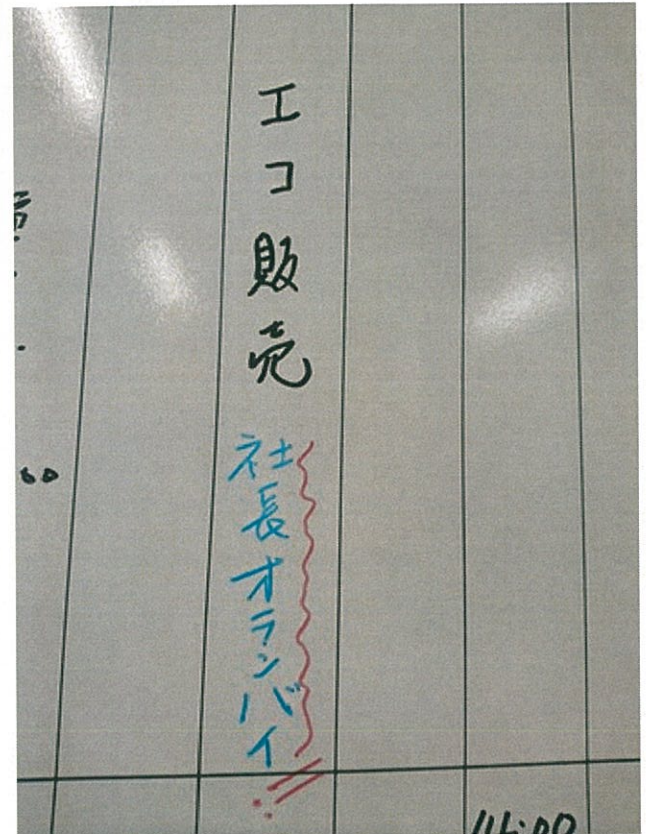 エコ販売
社長オランバイ!!
14:00